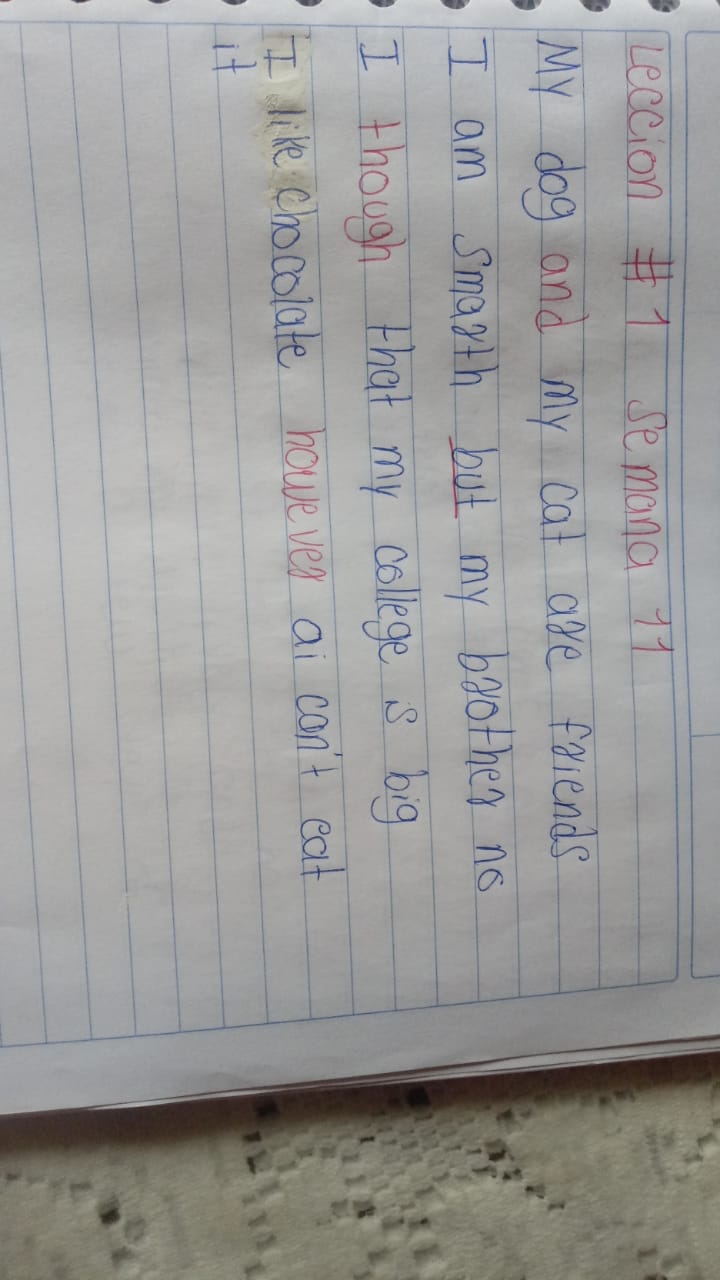 Leccion # 1 Semana 11
My dog and my cat are friends
I am smarth but my brother no
I though that my college is big
I like chocolate however ai can't eat
it